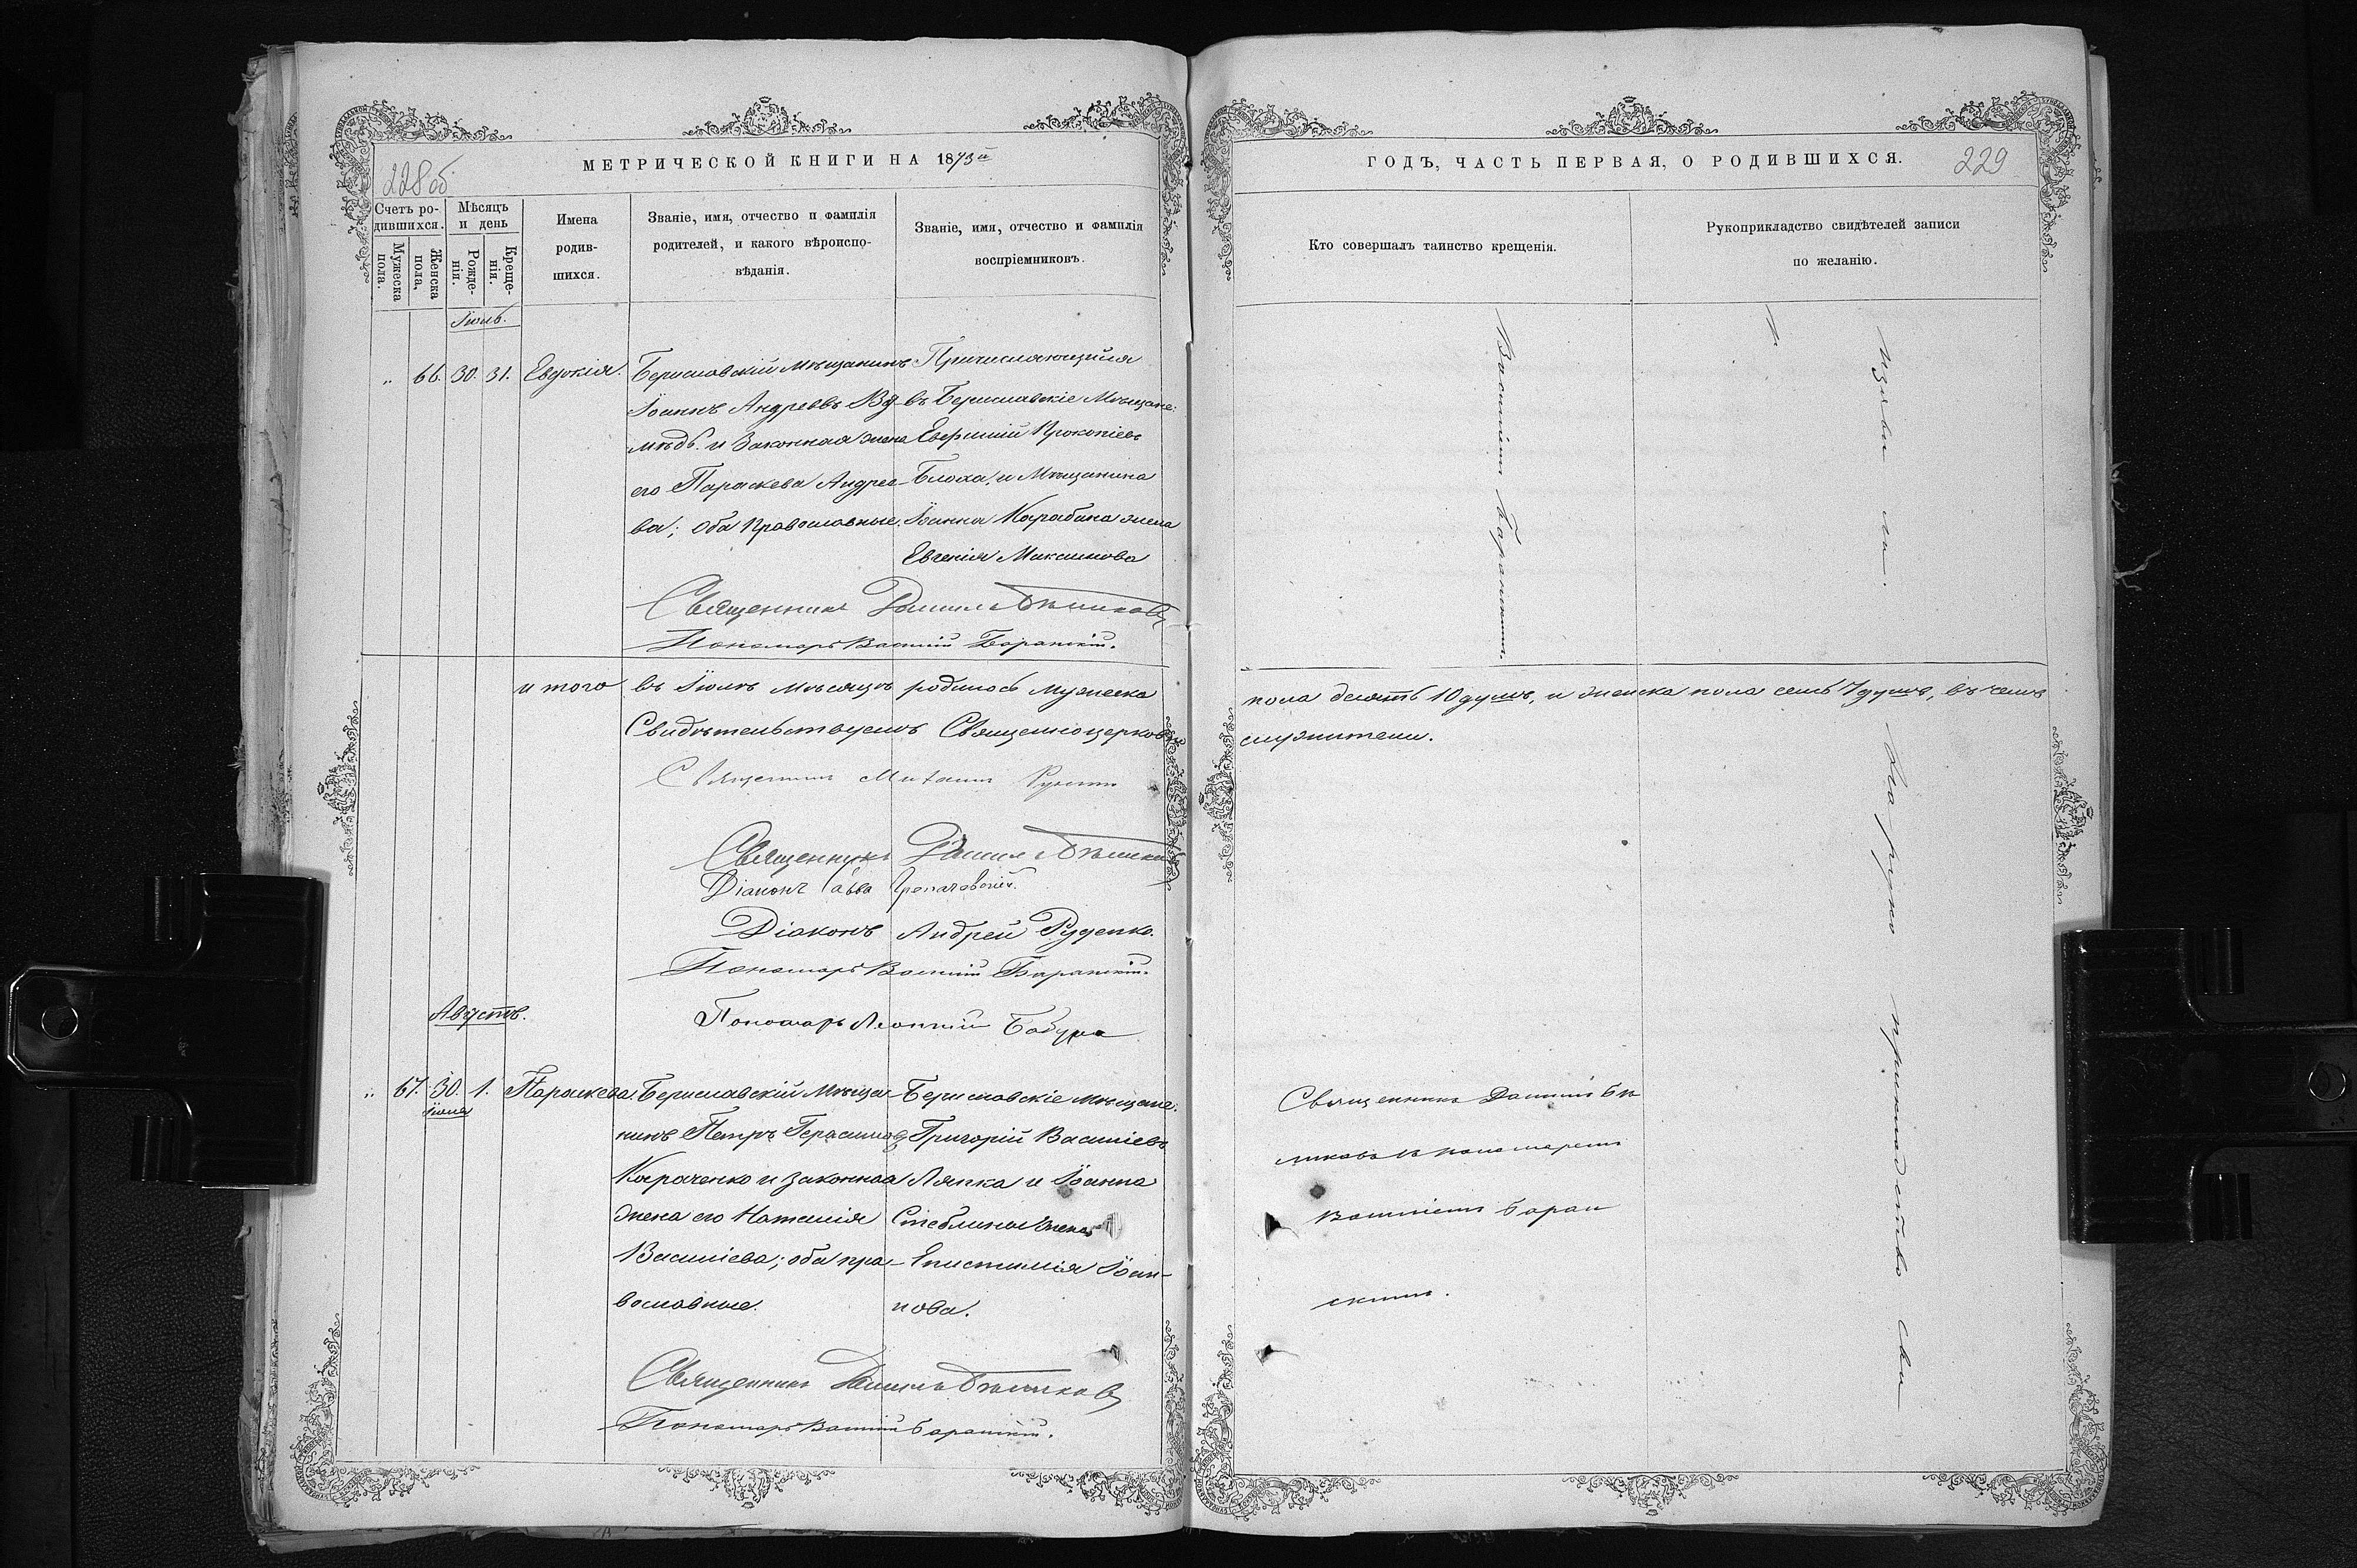 228об
МЕТРИЧЕСКОЙ КНИГИ НА 1873й
Счетъ ро-
дившихся.
Мужеска
пола.
Женска
пола,
Мѣсяцъ
и день
Рожде-
нія.
Креще-
нія.
Имена
родив-
шихся.
Званіе, имя, отчество и фамилія
родителей, и какого вѣроиспо-
вѣданія.
Званіе, имя, отчество и фамилія
воспріемниковъ.
Іюль.
„ 66. 30. 31. Евдокія.
Бериславскій Мѣщанинъ
Іоаннъ Андреевъ
и Законная жена
его Параскева Андрее-
ва; Оба Православные.
Причисляющийся
въ Бериславскіе Мѣщане:
Евфимій Прокопіевъ
Блоха, и Мѣщанина
Іоанна Карабана жена
Евгенія Максимова
Священникъ Даніилъ Бѣликовъ
Пономарь Василій Баранскій.
и того въ Іюлѣ Мѣсяцѣ родилось Мужеска
Свидѣтельствуемъ Священноцерковно
Священникъ Михаилъ
Священникъ Даніилъ Бѣликовъ
Діаконъ Савва
Діаконъ Андрей Руденко.
Пономарь Василій Баранскій.
Пономарь Леонтій Бабура
Августъ.
„ 67. 30. 1. Параскева.
Іюля
Бериславскій Мѣща-
нинъ Петръ Герасимовъ
Кираченко и законная
жена его Наталія
Василіева; оба пра-
вославные.
Бериславскіе мѣщане:
Григорій Василіевъ
Ляпка и Іоанна
Стеблина жена
Епистимія Іоан-
нова.
Священникъ Даніилъ Бѣликовъ
Пономарь Василій Баранскій.
ГОДЪ, ЧАСТЬ ПЕРВАЯ, О РОДИВШИХСЯ.
229
Кто совершалъ таинство крещенія.
Рукоприкладство свидѣтелей записи
по желанію.
Василіемъ Баранскимъ.
пола десять 10 душъ, и женска пола семь 7 душъ, въ чемъ
служители.
Священникъ Даніилъ Бѣ
ликовъ съ пономаремъ
Василіемъ Баран
скимъ.
рукоприкладство